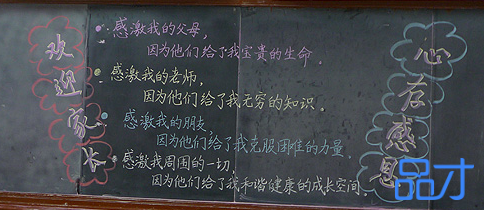 欢迎家长
感激我的父母,
因为他们给了我宝贵的生命.
感激我的老师,
因为他们给了我无穷的知识.
感激我的朋友
因为他们给了我克服困难的力量.
感激我周围的一切,
因为他们给了我和谐健康的成长空间.
心存感恩
品才